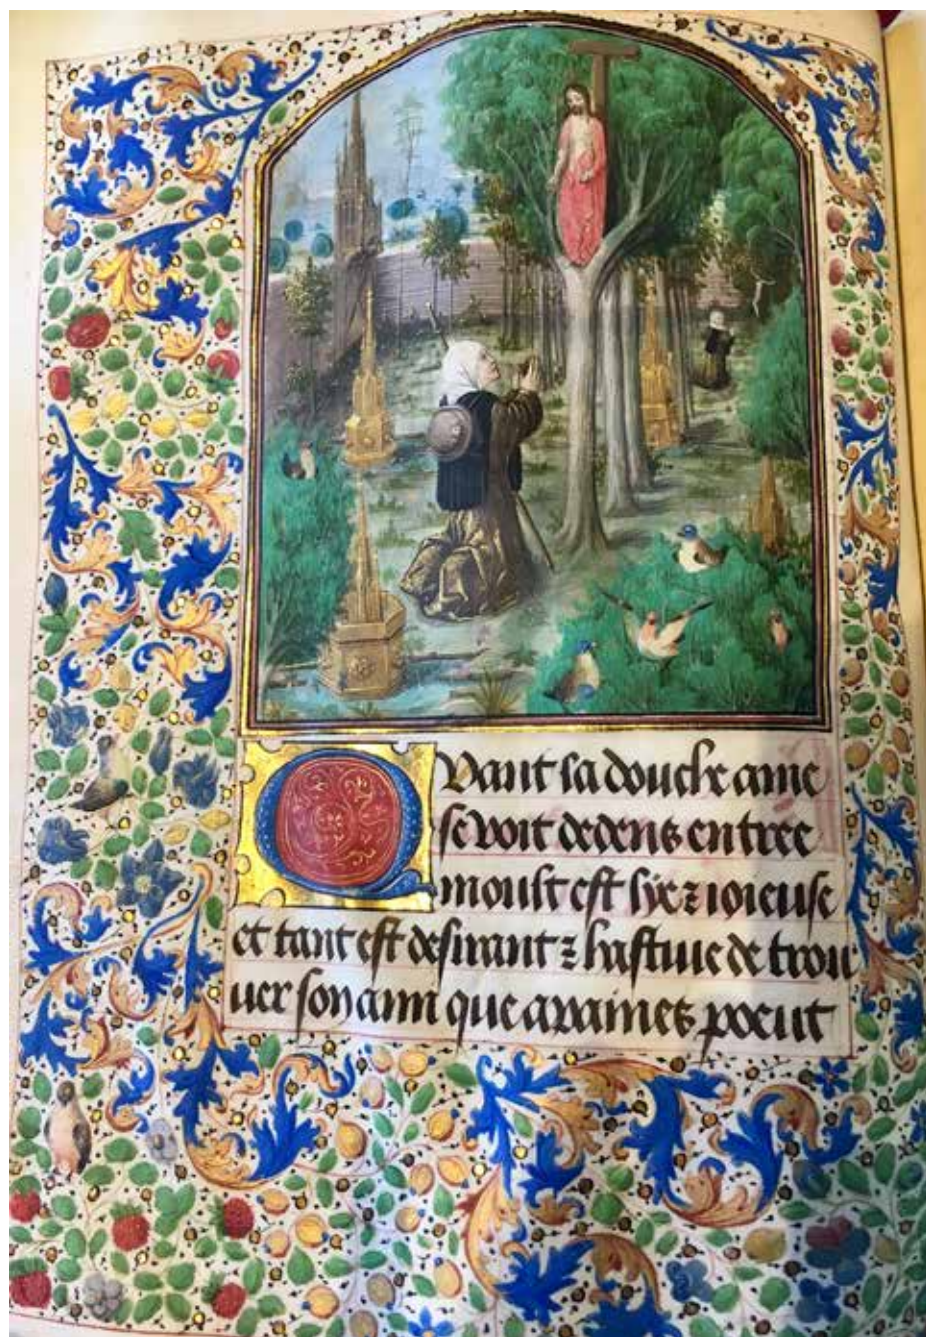 Quant la douche ame
se voit dedens entree
moult est lye ⁊ ioieuse
et tant est desirant ⁊ hastiue de trou
uer son ami que a paines poeut